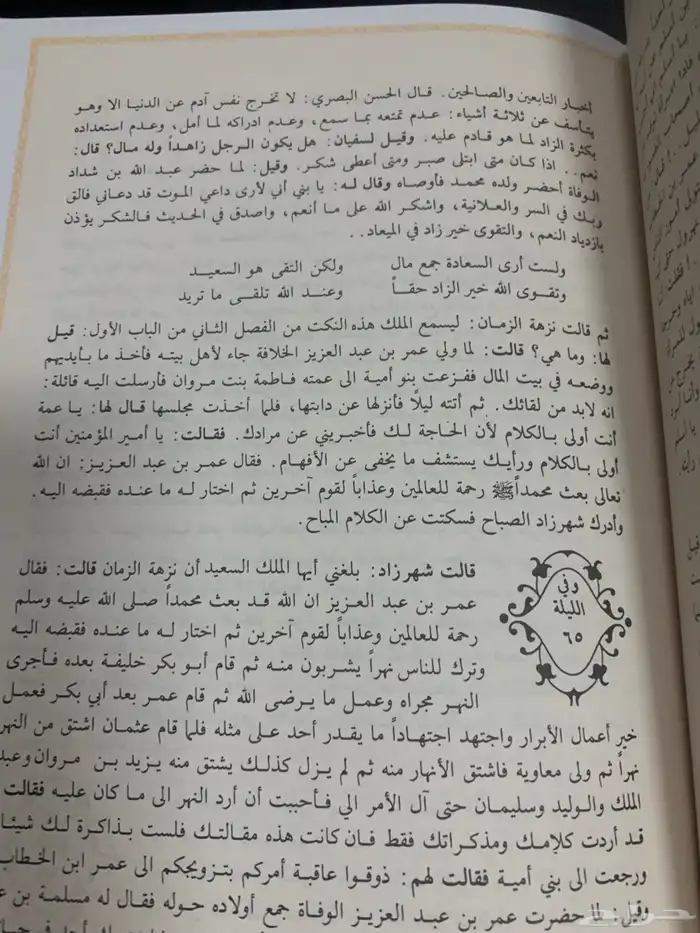 أخبار التابعين والصالحين. قال الحسن البصري: لا تخرج نفس آدم عن الدنيا الا وهو
يتأسف عن ثلاثة أشياء: عدم تمتعه بما سمع، وعدم ادراكه لما أمل، وعدم استعداده
بكثرة الزاد لما هو قادم عليه. وقيل لسفيان: هل يكون الرجل زاهداً وله مال؟ قال:
نعم.. اذا كان متى ابتلى صبر ومتى أعطى شكر. وقيل: لما حضر عبد الله بن شداد
الوفاة أحضر ولده محمد فأوصاه وقال له: يا بني أني لأرى داعي الموت قد دعاني فالق
ربك في السر والعلانية، واشكر الله على ما أنعم، واصدق في الحديث فالشكر يؤذن
بازدياد النعم، والتقوى خير زاد في الميعاد..
ولست أرى السعادة جمع مال ولكن التقى هو السعيد
وتقوى الله خير الزاد حقاً وعند الله تلقى ما تريد
ثم قالت نزهة الزمان: ليسمع الملك هذه النكت من الفصل الثاني من الباب الأول: قيل
لها: وما هي؟ قالت: لما ولي عمر بن عبد العزيز الخلافة جاء لأهل بيته فأخذ ما بأيديهم
ووضعه في بيت المال ففزعت بنو أمية الى عمته فاطمة بنت مروان فأرسلت اليه قائلة:
انه لابد من لقائك. ثم أتته ليلاً فأنزلها عن دابتها، فلما أخذت مجلسها قال لها: يا عمة
أنت أولى بالكلام لأن الحاجة لك فأخبريني عن مرادك. فقالت: يا أمير المؤمنين أنت
أولى بالكلام ورأيك يستشف ما يخفى عن الأفهام. فقال عمر بن عبد العزيز: ان الله
تعالى بعث محمداً ﷺ رحمة للعالمين وعذاباً لقوم آخرين ثم اختار له ما عنده فقبضه اليه.
وأدرك شهرزاد الصباح فسكتت عن الكلام المباح.
وفي
الليلة
٦٥
قالت شهرزاد: بلغني أيها الملك السعيد أن نزهة الزمان قالت: فقال
عمر بن عبد العزيز ان الله قد بعث محمداً صلى الله عليه وسلم
رحمة للعالمين وعذاباً لقوم آخرين ثم اختار له ما عنده فقبضه اليه
وترك للناس نهراً يشربون منه ثم قام أبو بكر خليفة بعده فأجرى
النهر مجراه وعمل ما يرضى الله ثم قام عمر بعد أبي بكر فعمل
خير أعمال الأبرار واجتهد اجتهاداً ما يقدر أحد على مثله فلما قام عثمان اشتق من النهر
نهراً ثم ولى معاوية فاشتق الأنهار منه ثم لم يزل كذلك يشتق منه يزيد بن مروان وعبد
الملك والوليد وسليمان حتى آل الأمر الي فأحببت أن أرد النهر الى ما كان عليه فقالت
قد أردت كلامك ومذكراتك فقط فان كانت هذه مقالتك فلست بذاكرة لك شيئا
ورجعت الى بني أمية فقالت لهم: ذوقوا عاقبة أمركم بتزويجكم الى عمر ابن الخطاب
وقيل: لما حضرت عمر بن عبد العزيز الوفاة جمع أولاده حوله فقال له مسلمة بن